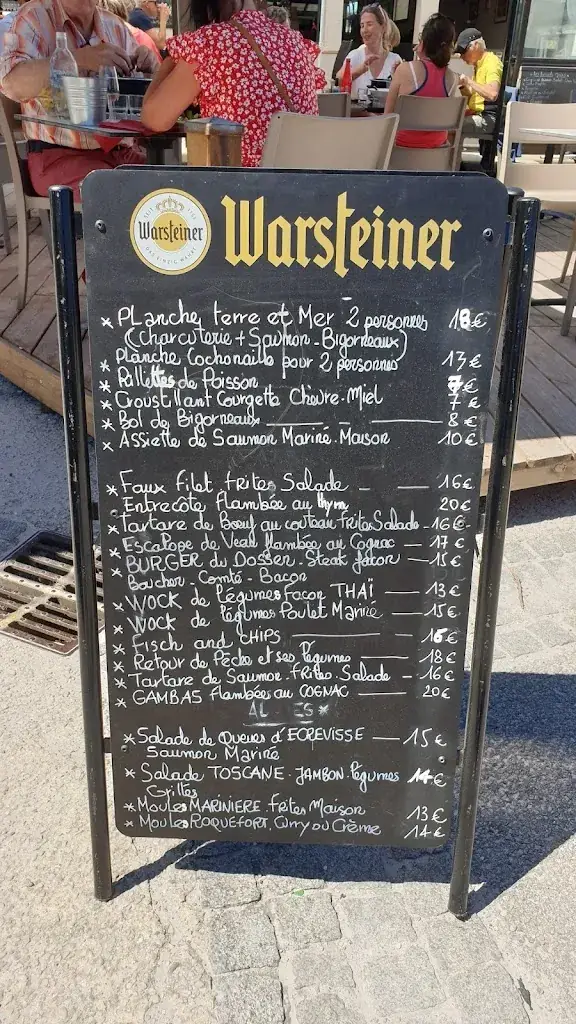 Warsteiner
Warsteiner
* Planche terre et Mer 2 personnes 18€
(Charcuterie + Saumon - Bigorneaux)
* Planche Cochonaille pour 2 personnes 17€
* Rillettes de Poisson 7€
* Croustillant Courgette Chèvre - Miel 7€
* Bol de Bigorneaux 8€
* Assiette de Saumon Mariné Maison 10€
* Faux Filet Frites Salade 16€
* Entrecôte flambée au thym 20€
* Tartare de Bœuf au couteau frites Salade - 16€
* Escalope de Veau flambée au Cognac - 17€
* BURGER du DOSSEN - Steak façon - 15€
Boucher - Comté - Bacon
* WOCK de Légumes Façon THAÏ - 13€
* WOCK de Légumes Poulet Mariné - 15€
* Fisch and CHIPS 16€
* Retour de Pêche et ses légumes 18€
* Tartare de Saumon - Frites - Salade - 16€
* GAMBAS flambées au COGNAC 20€
* Salade de Queues d'ECREVISSE - 15€
Saumon Mariné
* Salade TOSCANE - JAMBON - légumes 14€
Grillés
* Moules MARINIERE - frites Maison 13€
* Moules ROQUEFORT, Curry ou Crème 14€